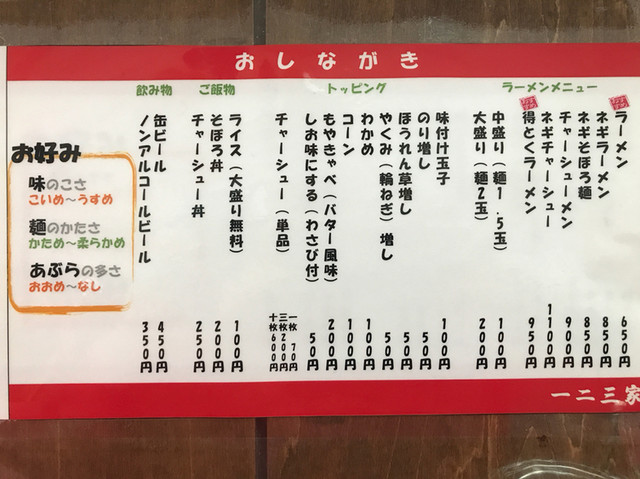 おしながき
ラーメンメニュー
ラーメン 650円
ネギラーメン 850円
ネギそぼろ麺 850円
チャーシューメン 900円
ネギチャーシュー 1100円
得とくラーメン 950円
中盛り(麺1.5玉) 100円
大盛り(麺2玉) 200円
トッピング
味付け玉子 100円
のり増し 50円
ほうれん草増し 50円
やくみ(輪ねぎ)増し 50円
わかめ 100円
コーン 100円
もやきゃべ(バター風味) 200円
しお味にする(わさび付) 50円
チャーシュー(単品) 一枚70円 三枚200円 十枚600円
ご飯物
ライス(大盛り無料) 100円
そぼろ丼 200円
チャーシュー丼 250円
飲み物
缶ビール 450円
ノンアルコールビール 350円
お好み
味のこさ
こいめ～うすめ
麺のかたさ
かため～柔らかめ
あぶらの多さ
おおめ～なし
一二三家